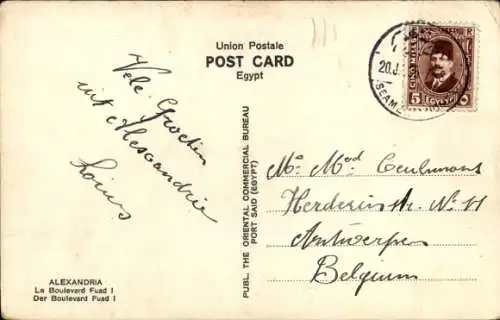 Union Postale
POST CARD
Egypt
Vele Groeten
uit Alexandrie
Louis
PUBL. THE ORIENTAL COMMERCIAL BUREAU
PORT SAID (EGYPT)
20.J
SEAM
5
EGYPTE
Antwerpen
Belgium
ALEXANDRIA
Le Boulevard Fuad I
Der Boulevard Fuad I